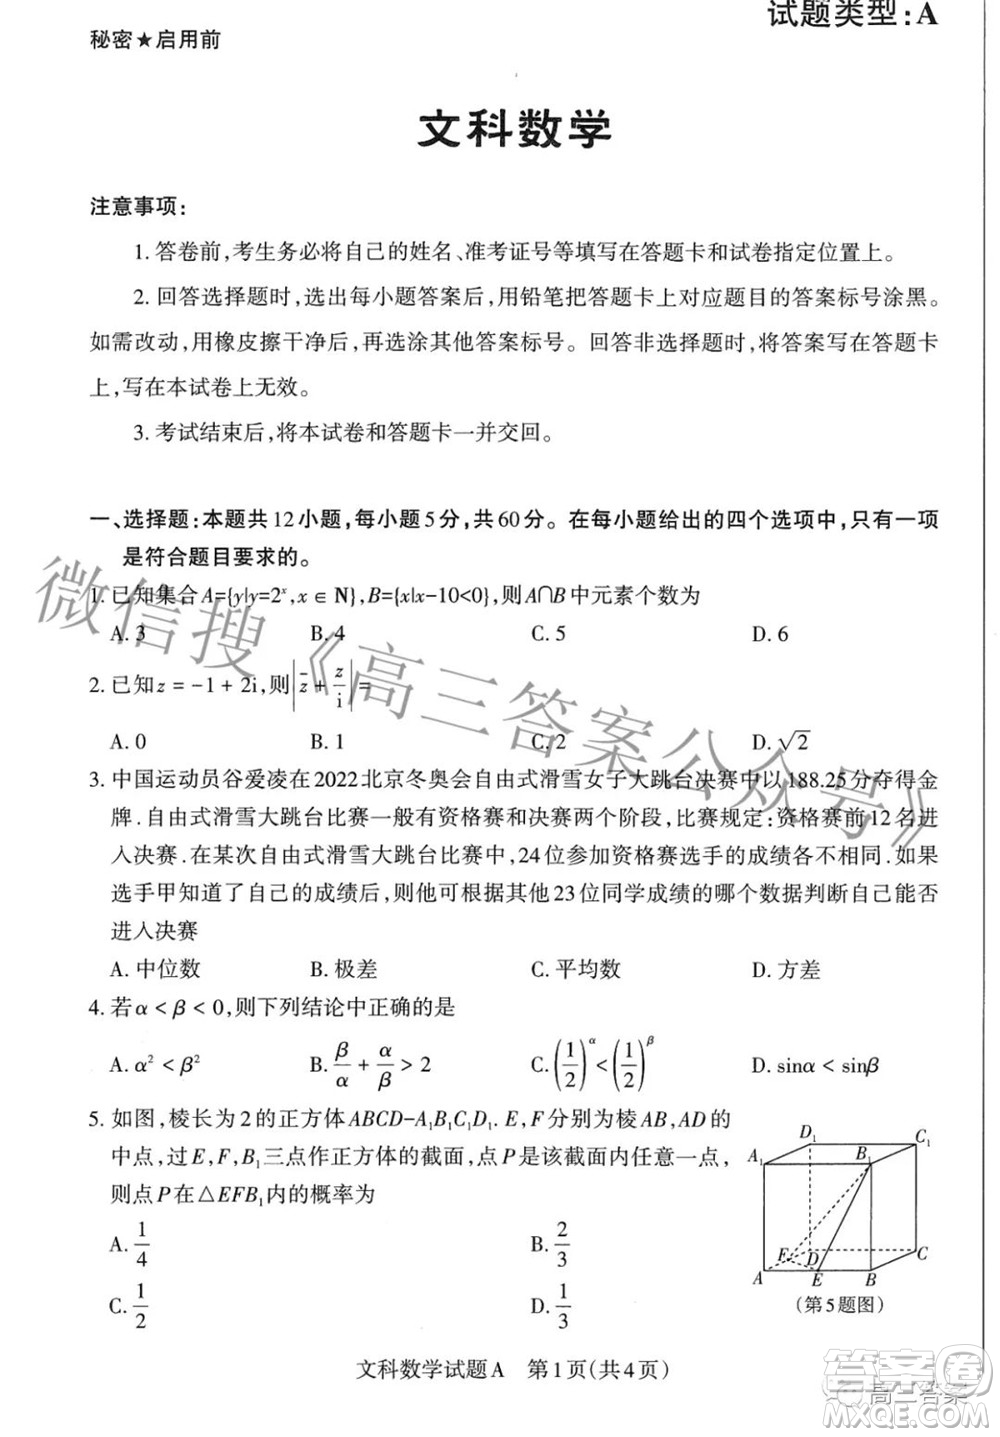 试题类型:A
秘密★启用前
文科数学
注意事项:
1. 答卷前,考生务必将自己的姓名、准考证号等填写在答题卡和试卷指定位置上。
2. 回答选择题时,选出每小题答案后,用铅笔把答题卡上对应题目的答案标号涂黑。
如需改动,用橡皮擦干净后,再选涂其他答案标号。回答非选择题时,将答案写在答题卡
上,写在本试卷上无效。
3. 考试结束后,将本试卷和答题卡一并交回。
一、选择题:本题共12小题,每小题5分,共60分。在每小题给出的四个选项中,只有一项
是符合题目要求的。
1. 已知集合A={y|y=2ˣ,x∈N},B={x|x-10<0},则A∩B中元素个数为
A. 3 B. 4 C. 5 D. 6
2. 已知z=-1+2i,则|z̄+z/i|=
A. 0 B. 1 C. 2 D. √2
3. 中国运动员谷爱凌在2022北京冬奥会自由式滑雪女子大跳台决赛中以188.25分夺得金
牌.自由式滑雪大跳台比赛一般有资格赛和决赛两个阶段,比赛规定:资格赛前12名进
入决赛.在某次自由式滑雪大跳台比赛中,24位参加资格赛选手的成绩各不相同.如果
选手甲知道了自己的成绩后,则他可根据其他23位同学成绩的哪个数据判断自己能否
进入决赛
A. 中位数 B. 极差 C. 平均数 D. 方差
4. 若α<β<0,则下列结论中正确的是
A. α²<β² B. β/α+α/β>2 C. (1/2)^α<(1/2)^β D. sinα<sinβ
5. 如图,棱长为2的正方体ABCD-A₁B₁C₁D₁.E,F分别为棱AB,AD的
中点,过E,F,B₁三点作正方体的截面,点P是该截面内任意一点,
则点P在△EFB₁内的概率为
A. 1/4 B. 2/3
C. 1/2 D. 1/3
D₁ C₁
A₁ B₁
F D C
A E B
(第5题图)
文科数学试题A 第1页(共4页)
微信搜《高三答案公众号》
答案圈
高三答案
MXQE.COM